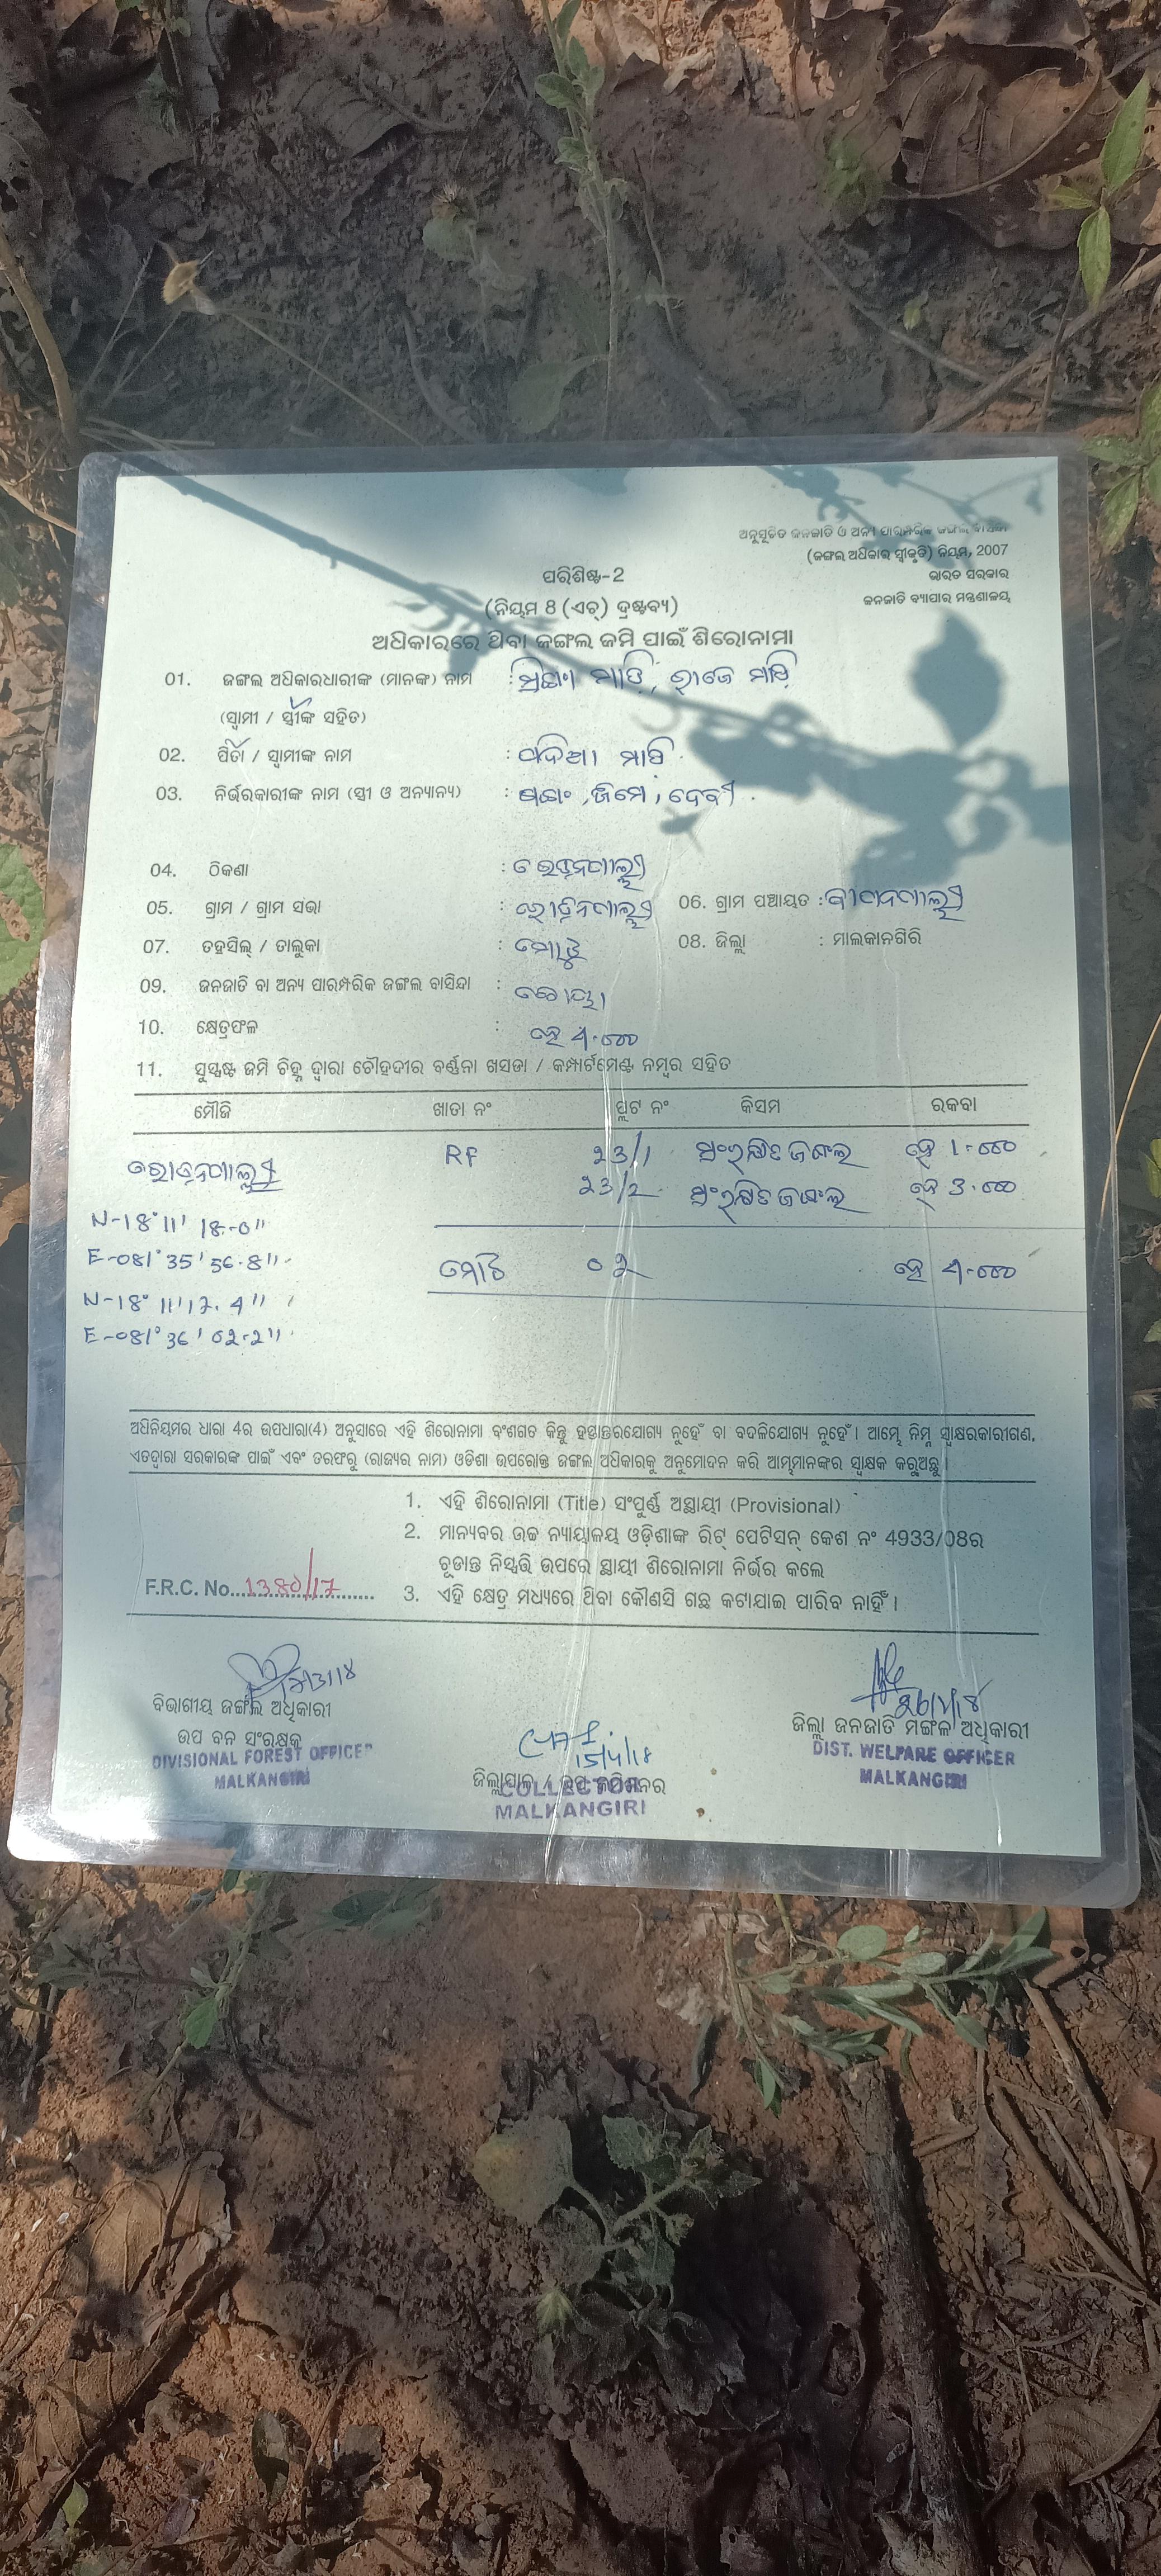 ଅନୁସୂଚିତ ଜନଜାତି ଓ ଅନ୍ୟ ପାରମ୍ପରିକ ଜଙ୍ଗଲ ବାସିନ୍ଦା
(ଜଙ୍ଗଲ ଅଧିକାର ସ୍ୱୀକୃତି) ନିୟମ, 2007
ଭାରତ ସରକାର
ଜନଜାତି ବ୍ୟାପାର ମନ୍ତ୍ରଣାଳୟ
ପରିଶିଷ୍ଟ-2
(ନିୟମ 8 (ଏଚ୍) ଦ୍ରଷ୍ଟବ୍ୟ)
ଅଧିକାରରେ ଥିବା ଜଙ୍ଗଲ ଜମି ପାଇଁ ଶିରୋନାମା
01. ଜଙ୍ଗଲ ଅଧିକାରଧାରୀଙ୍କ (ମାନଙ୍କ) ନାମ : ମାଡ଼ି, ରାଜେ ମାଡ଼ି
(ସ୍ୱାମୀ / ସ୍ତ୍ରୀଙ୍କ ସହିତ)
02. ପିତା / ସ୍ୱାମୀଙ୍କ ନାମ : ପଦିଆ ମାଡ଼ି
03. ନିର୍ଭରକାରୀଙ୍କ ନାମ (ସ୍ତ୍ରୀ ଓ ଅନ୍ୟାନ୍ୟ) : , ଦେବୀ
04. ଠିକଣା :
05. ଗ୍ରାମ / ଗ୍ରାମ ସଭା : 06. ଗ୍ରାମ ପଞ୍ଚାୟତ :
07. ତହସିଲ୍ / ତାଲୁକା : ମୋଟୁ 08. ଜିଲ୍ଲା : ମାଲକାନଗିରି
09. ଜନଜାତି ବା ଅନ୍ୟ ପାରମ୍ପରିକ ଜଙ୍ଗଲ ବାସିନ୍ଦା : କୋୟା
10. କ୍ଷେତ୍ରଫଳ : ହେ 4.000
11. ସୁସ୍ପଷ୍ଟ ଜମି ଚିହ୍ନ ଦ୍ୱାରା ଚୌହଦୀର ବର୍ଣ୍ଣନା ଖସଡା / କମ୍ପାର୍ଟମେଣ୍ଟ ନମ୍ବର ସହିତ
ମୌଜି ଖାତା ନଂ ପ୍ଲଟ ନଂ କିସମ ରକବା
RF 23/1 ସଂରକ୍ଷିତ ଜଙ୍ଗଲ ହେ 1.000
23/2 ସଂରକ୍ଷିତ ଜଙ୍ଗଲ ହେ 3.000
N-18°11' 18.0"
E-081°35'56.8"
ମୋଟ ୦୨ ହେ 4.000
N-18°11'17.4"
E-081°36'02.2"
ଅଧିନିୟମର ଧାରା 4ର ଉପଧାରା(4) ଅନୁସାରେ ଏହି ଶିରୋନାମା ବଂଶଗତ କିନ୍ତୁ ହସ୍ତାନ୍ତରଯୋଗ୍ୟ ନୁହେଁ ବା ବଦଳିଯୋଗ୍ୟ ନୁହେଁ। ଆମ୍ଭେ ନିମ୍ନ ସ୍ୱାକ୍ଷରକାରୀଗଣ,
ଏତଦ୍ୱାରା ସରକାରଙ୍କ ପାଇଁ ଏବଂ ତରଫରୁ (ରାଜ୍ୟର ନାମ) ଓଡିଶା ଉପରୋକ୍ତ ଜଙ୍ଗଲ ଅଧିକାରକୁ ଅନୁମୋଦନ କରି ଆମ୍ଭମାନଙ୍କର ସ୍ୱାକ୍ଷକ କରୁଅଛୁ।
1. ଏହି ଶିରୋନାମା (Title) ସଂପୁର୍ଣ ଅସ୍ଥାୟୀ (Provisional)
2. ମାନ୍ୟବର ଉଚ୍ଚ ନ୍ୟାୟାଳୟ ଓଡ଼ିଶାଙ୍କ ରିଟ୍ ପେଟିସନ୍ କେଶ ନଂ 4933/08ର
ଚୂଡାନ୍ତ ନିସ୍ପତ୍ତି ଉପରେ ସ୍ଥାୟୀ ଶିରୋନାମା ନିର୍ଭର କଲେ
F.R.C. No. 1380/17
3. ଏହି କ୍ଷେତ୍ର ମଧ୍ୟରେ ଥିବା କୌଣସି ଗଛ କଟାଯାଇ ପାରିବ ନାହିଁ।
26/1/18
ବିଭାଗୀୟ ଜଙ୍ଗଲ ଅଧିକାରୀ
ଜିଲ୍ଲା ଜନଜାତି ମଙ୍ଗଳ ଅଧିକାରୀ
ଉପ ବନ ସଂରକ୍ଷକ
DIVISIONAL FOREST OFFICER
MALKANGIRI
DIST. WELFARE OFFICER
MALKANGIRI
15/4/18
ଜିଲ୍ଲାପାଳ / ଉପ କମିଶନର
COLLECTOR
MALKANGIRI